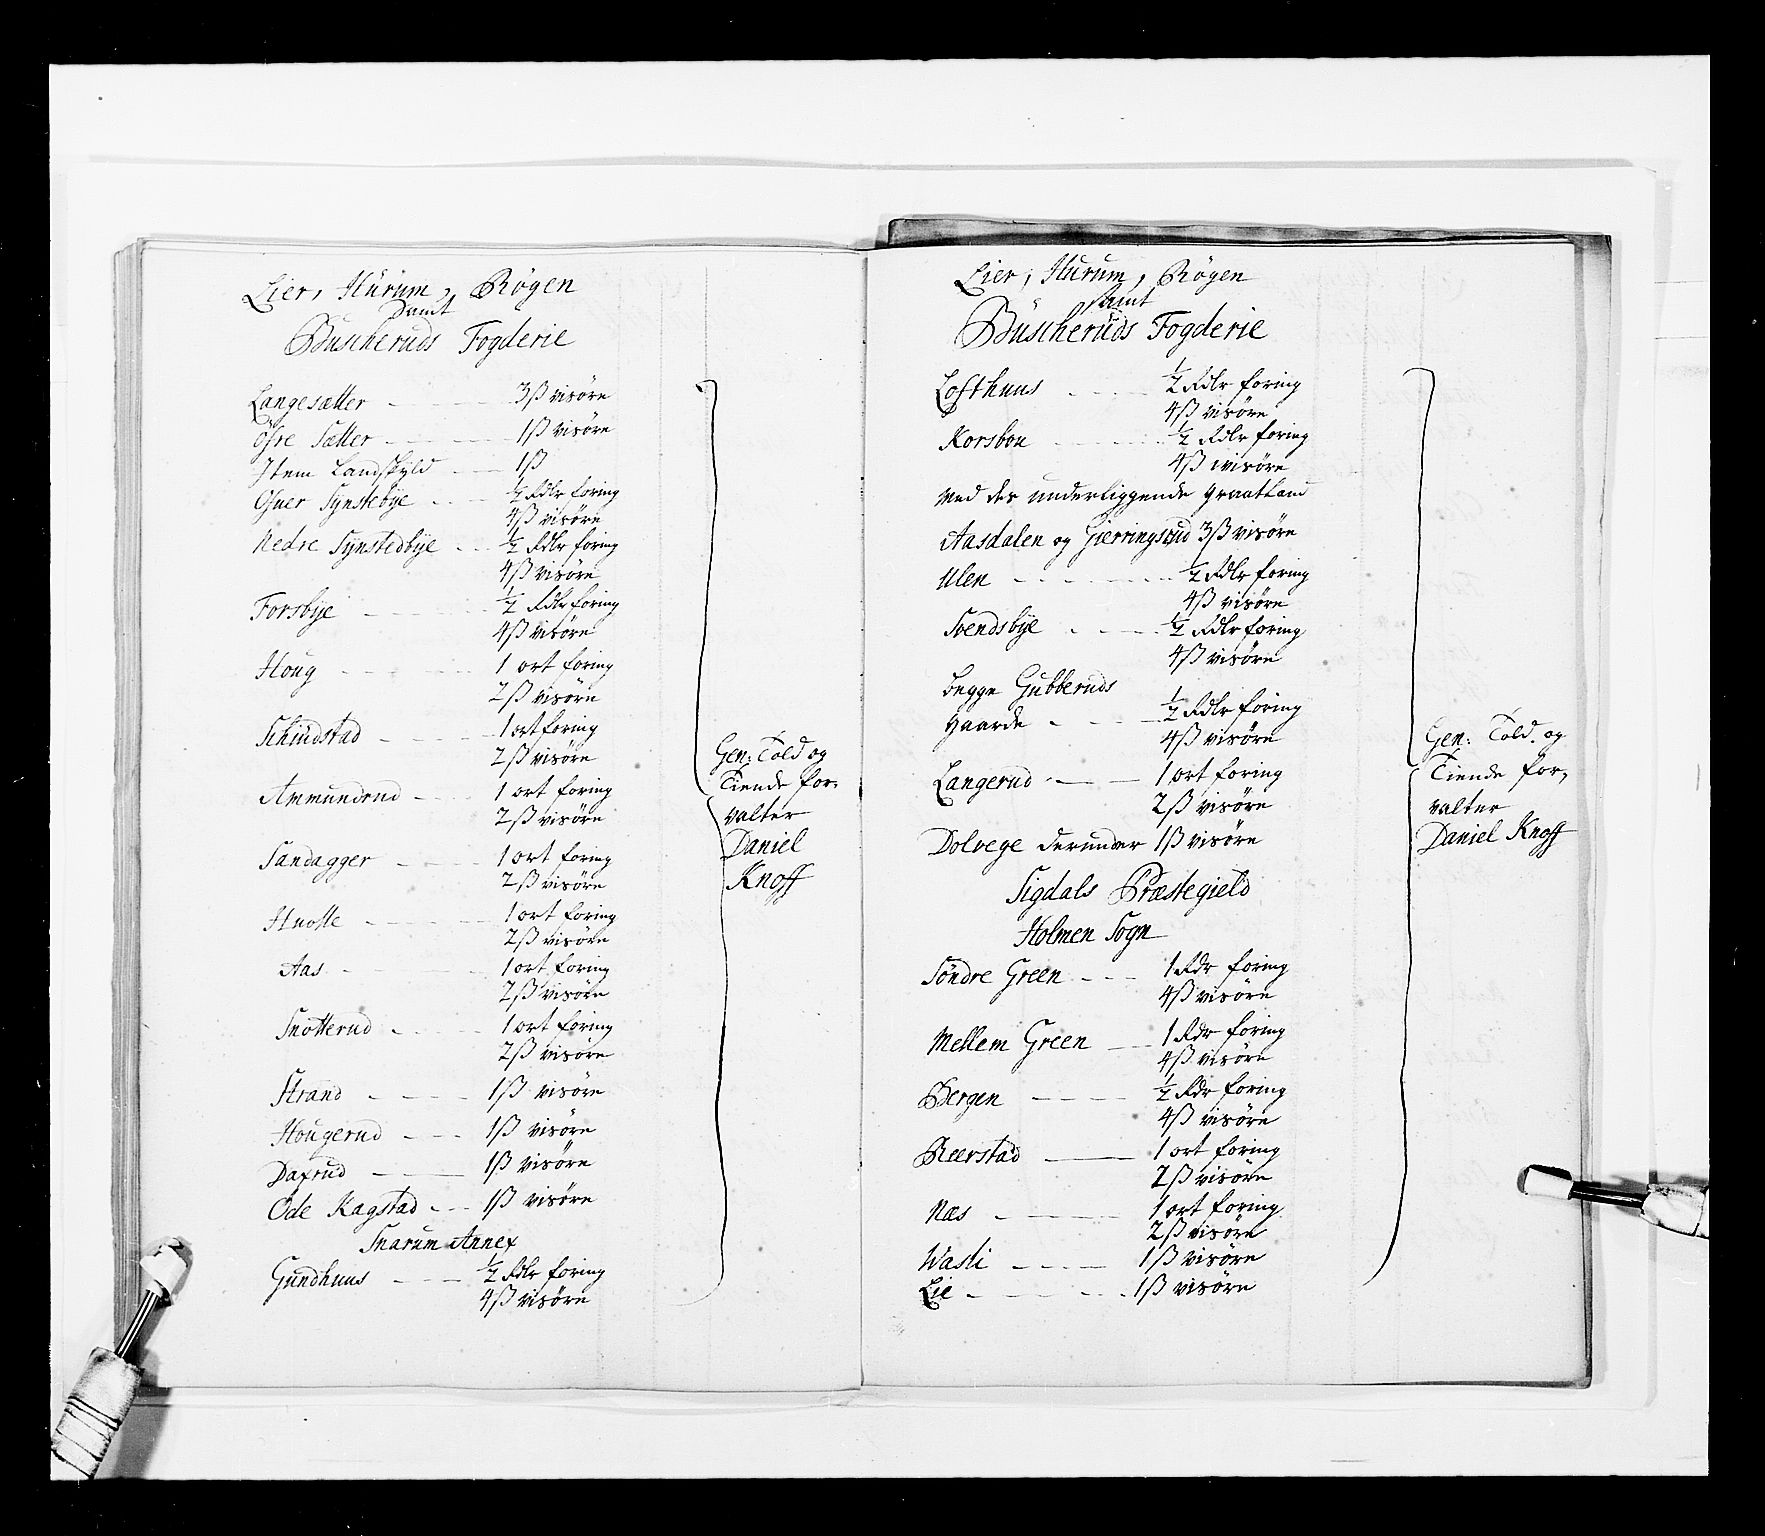 Lier, Hurum, Røgen
Samt
Buscheruds Fogderie
Langesætter - - - 3ß visöre
Öfre Sætter - - - 1ß visöre
Item Landskyld - - 1ß
Ofuer Synstebÿe - - - ½ Rdlr foring
4ß visöre
Nedre Synstedbÿe - - - ½ Rdlr foring
4ß visöre
Forsbÿe - - - ½ Rdlr foring
4ß visöre
Houg - - - 1 ort foring
2ß visöre
Schindstad - - - 1 ort foring
2ß visöre
Ammundrud - - - 1 ort foring
2ß visöre
Sandagger - - - 1 ort foring
2ß visöre
- - - 1 ort foring
2ß visöre
Aas - - - 1 ort foring
2ß visöre
Snotterud - - - 1 ort foring
2ß visöre
Strand - - - 1ß visöre
Hougerud - - - 1ß visöre
Dafrud - - - 1ß visöre
Öde Kagstad - - - 1ß visöre
Snarum Annex
Gundhuus - - - ½ Rdlr foring
4ß visöre
Gen: Told og
Tiende for-
valter
Daniel
Knoff
Lier, Hurum, Røgen
Samt
Buscheruds Fogderie
Lofthuus - - - ½ Rdlr foring
4ß visöre
Korsboe - - - ½ Rdlr foring
4ß visöre
med des underliggende
Aasdalen og Gierringsrud 3ß visöre
Ulen - - - ½ Rdlr foring
4ß visöre
Svendsbÿe - - - ½ Rdlr foring
4ß visöre
begge Gubberuds
gaarde - - - ½ Rdlr foring
4ß visöre
Langerud - - - 1 ort foring
2ß visöre
Dolvege derunder 1ß visöre
Sigdals Præstegield
Holmen Sogn
Söndre Green - - - 1 Rdr foring
4ß visöre
Mellem Green - - - 1 Rdr foring
4ß visöre
Bergen - - - ½ Rdr foring
4ß visöre
Reerstad - - - 1 ort foring
2ß visöre
Næs - - - 1 ort foring
2ß visöre
Wasli - - - 1ß visöre
Lie - - - 1ß visöre
Gen: Told. og
Tiende for-
valter
Daniel Knoff